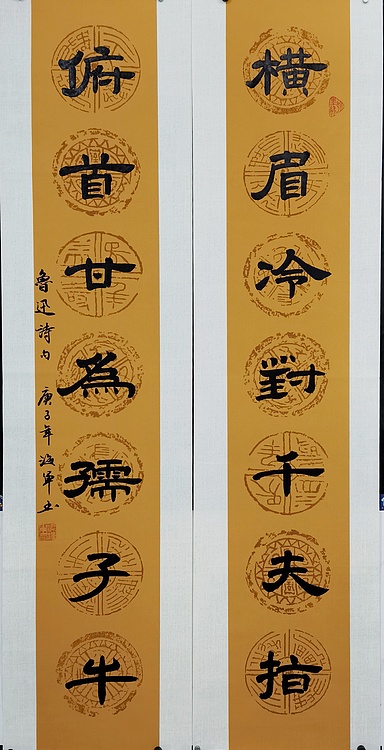 橫眉冷對千夫指
俯首甘為孺子牛
魯迅詩句 庚子年海军书